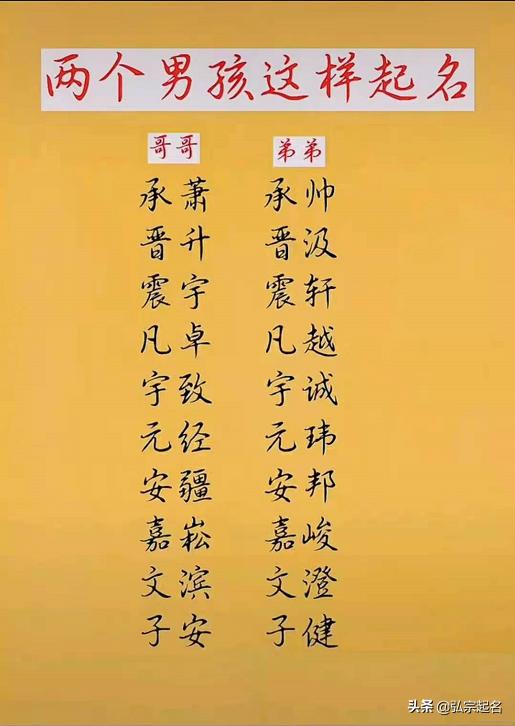 两个男孩这样起名
哥哥 弟弟
承萧 承帅
晋升 晋汲
震宇 震轩
凡卓 凡越
宇致 宇诚
元经 元玮
安疆 安邦
嘉崧 嘉峻
文滨 文澄
子安 子健
头条 @弘宗起名